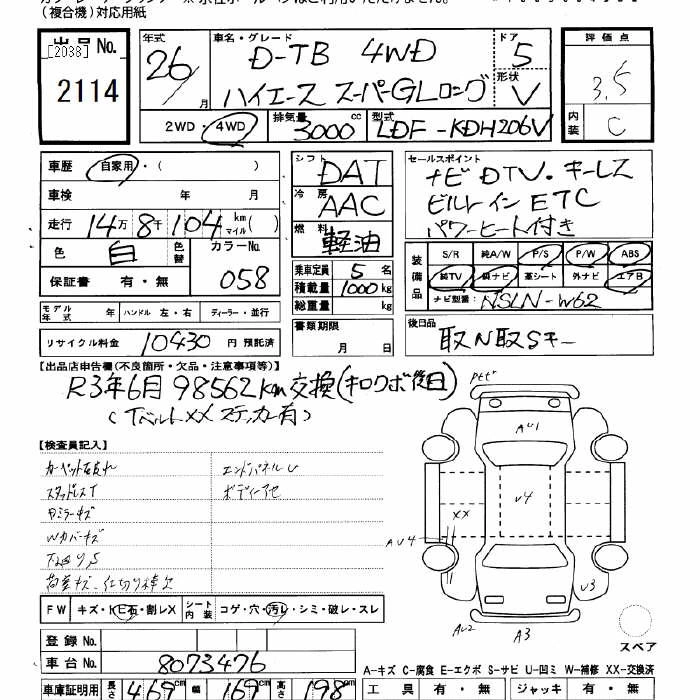 (複合機)対応用紙
出品No.
[2038]
2114
年式
26
月
車名・グレード
D-TB 4WD
ハイエース スーパーGLロング
ドア
5
形状
V
評価点
3.5
内装
C
2WD・4WD
排気量
3000 cc
型式
LDF-KDH206V
車歴 自家用・( )
車検 年 月
走行 14万8千104 km マイル( )
色 白 色替 カラーNo.
058
保証書 有・無
シフト DAT
冷房 AAC
燃料 軽油
乗車定員 5 名
積載量 1000 kg
総重量 kg
セールスポイント
ナビ DTV・キーレス
ビルトイン ETC
パワーヒート付き
装備品
S/R 純A/W P/S P/W ABS
純TV 純ナビ 革シート 外ナビ エアB
ナビ型番( NSLN-W62
モデル年式 年 ハンドル 左・右 ディーラー・並行
リサイクル料金 10430 円 預託済
書類期限
月 日
後日品
取N取Sキー
【出品店申告欄(不良箇所・欠品・注意事項等)】
R3年6月 98562km交換(キロクボ後日)
(Tベルト××ステッカー有)
【検査員記入】
エンドパネルU
スタッドレスT
ボディーアセ
Dミラーキズ
Wカバーキズ
荷室キズ・仕切り棒欠
AU1
U4
XX
AU4
U3
AU2
A3
スペア
FW キズ・ヒ石・割レX シート内装 コゲ・穴・汚レ・シミ・破レ・スレ
登録No.
車台No. 8073476
車庫証明用 長さ 469cm 幅 169cm 高さ 198cm
A-キズ C-腐食 E-エクボ S-サビ U-凹ミ W-補修 XX-交換済
工具 有・無 ジャッキ 有・無